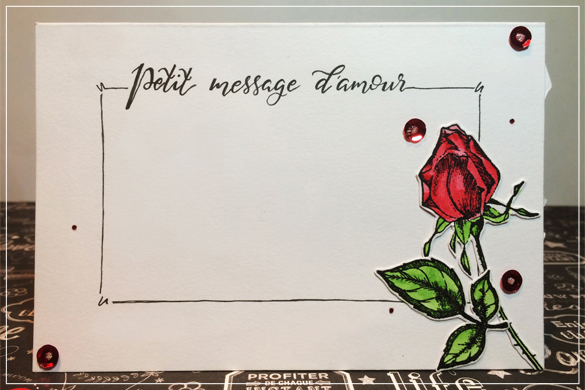 Petit message d'amour
PROFITER
DE CHAQUE